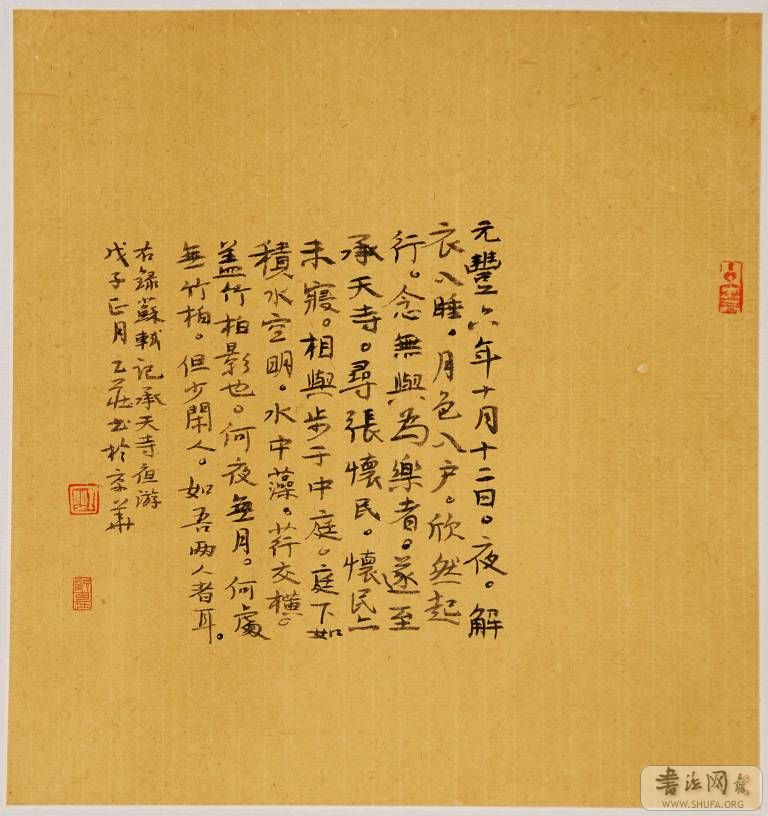 元豐六年十月十二日。夜。解
衣入睡。月色入户。欣然起
行。念無與為樂者。遂至
承天寺。尋張懷民。懷民亠
未寢。相與步于中庭。庭下如
積水空明。水中藻。荇交橫。
盖竹柏影也。何夜無月。何處
無竹柏。但少閑人。如吾兩人者耳。
右録蘇軾記承天寺夜游
戊子正月 乙莊书於京華
書法网
WWW.SHUFA.ORG